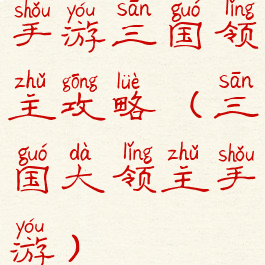 shǒu yóu sān guó lǐng
手游三国领
zhǔ gōng lüè sān
主攻略（三
guó dà lǐng zhǔ shǒu
国大领主手
yóu
游）